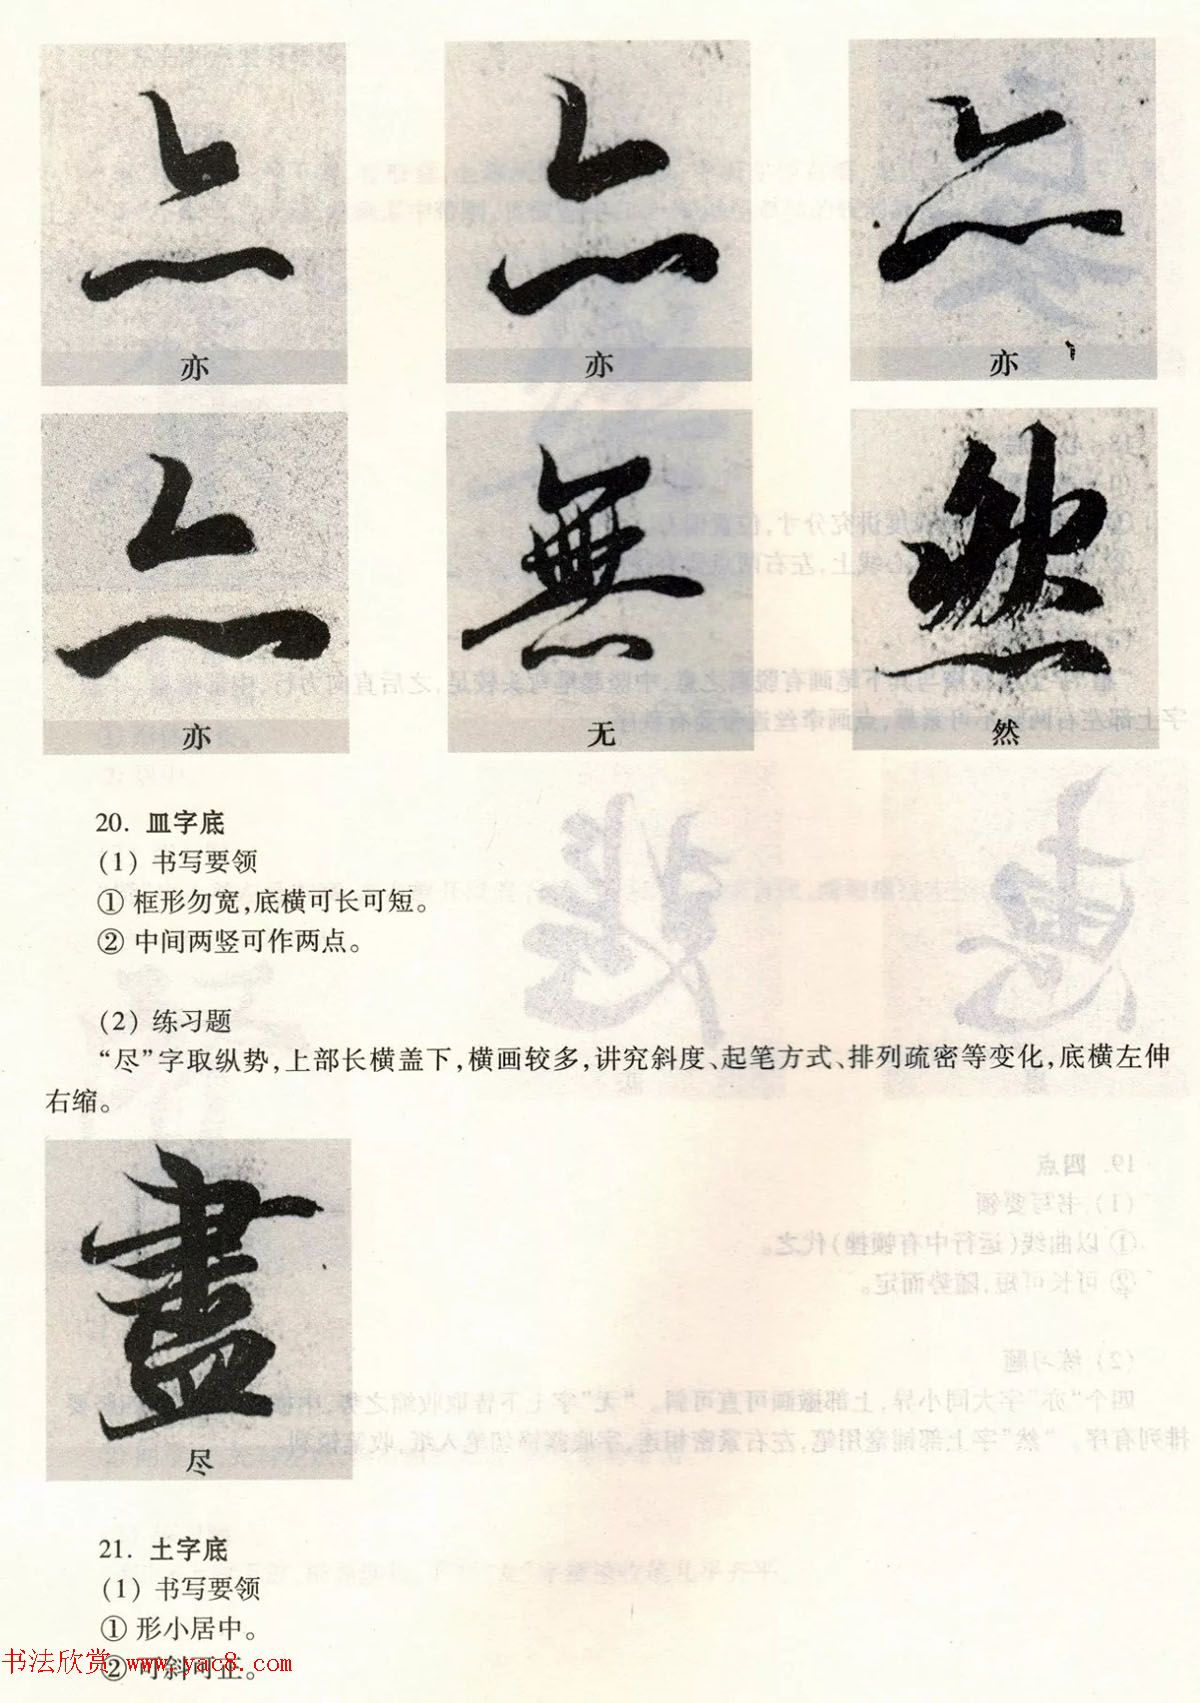 亦 亦 亦
亦 无 然
20. 皿字底
(1) 书写要领
① 框形勿宽,底横可长可短。
② 中间两竖可作两点。
(2) 练习题
“尽”字取纵势,上部长横盖下,横画较多,讲究斜度、起笔方式、排列疏密等变化,底横左伸
右缩。
尽
21. 土字底
(1) 书写要领
① 形小居中。
② 可斜可正。
书法欣赏 www.yac8.com